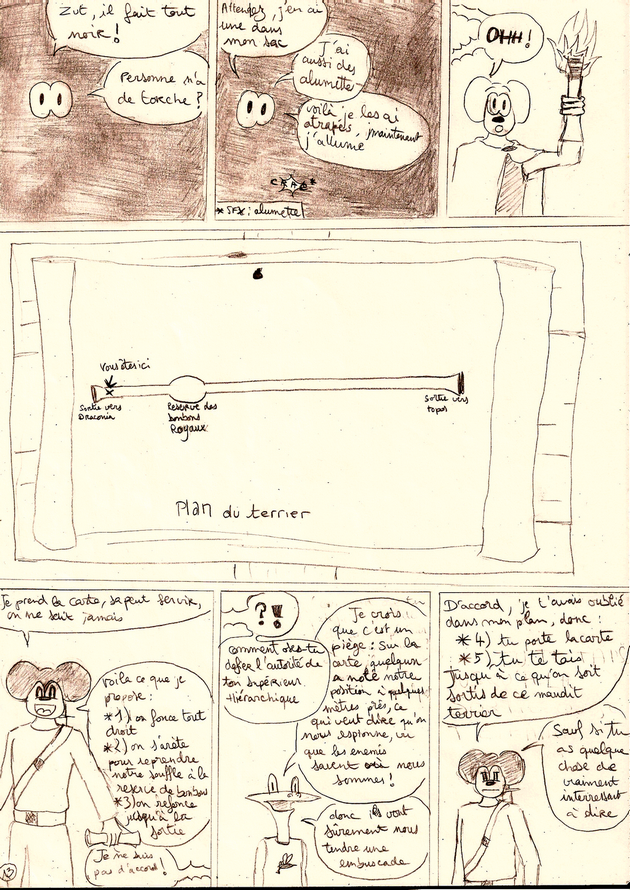 Zut, il fait tout
noir !
Personne n'a
de torche ?
Attendez, j'en ai
une dans
mon sac
J'ai
aussi des
alumette
voilà, je les ai
atrapés, maintenant
j'allume
CRAC
* SFX : alumette
OHH !
Vous êtes ici
Sortie vers
Draconia
Réserve des
bonbons
Royaux
Sortie vers
topos
Plan du terrier
Je prend la carte, sa peut servir,
on ne sait jamais
Voila ce que je
propose :
*1) on fonce tout
droit
*2) on s'arête
pour reprendre
notre souffle à la
reserve de bonbons
*3) on refonce
jusqu'à la
sortie
Je ne suis
pas d'accord !
?!
Comment oses-tu
défier l'autorité de
ton supérieur
Hiérarchique
Je crois
que c'est un
piège : Sur la
carte, quelqu'un
a noté notre
position à quelques
mètres près, ce
qui veut dire qu'on
nous espionne, vu
que les enemis
savent où nous
sommes !
donc ils vont
surement nous
tendre une
embuscade
D'accord, je t'avais oublié
dans mon plan, donc :
*4) tu porte la carte
*5) tu te tais
Jusqu'à ce qu'on soit
sortis de ce maudit
terrier
Sauf si tu
as quelque
chose de
vraiment
interressant
à dire
13